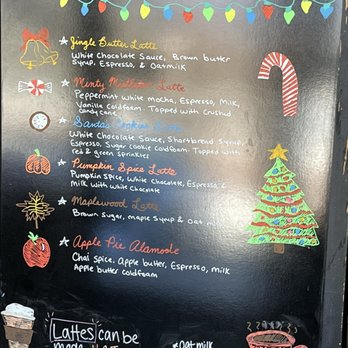 Jingle Butter Latte
White Chocolate Sauce, Brown butter
Syrup, Espresso, & Oatmilk
Minty Mistletoe Latte
Peppermint white mocha, Espresso, Milk,
Vanilla coldfoam. Topped with crushd
candy cane
Santa's Latte
White Chocolate Sauce, Shortbread Syrup
Espresso, Sugar cookie coldfoam. Topped with
red & green sprinkles
Pumpkin Spice Latte
Pumpkin Spice, White Chocolate, Espresso, &
Milk with white chocolate
Maplewood Latte
Brown Sugar, maple Syrup & Oat
Apple Pie Alamode
Chai spice, Apple butter, Espresso, Milk
Apple butter coldfoam
Lattes can be
made
*Oatmilk